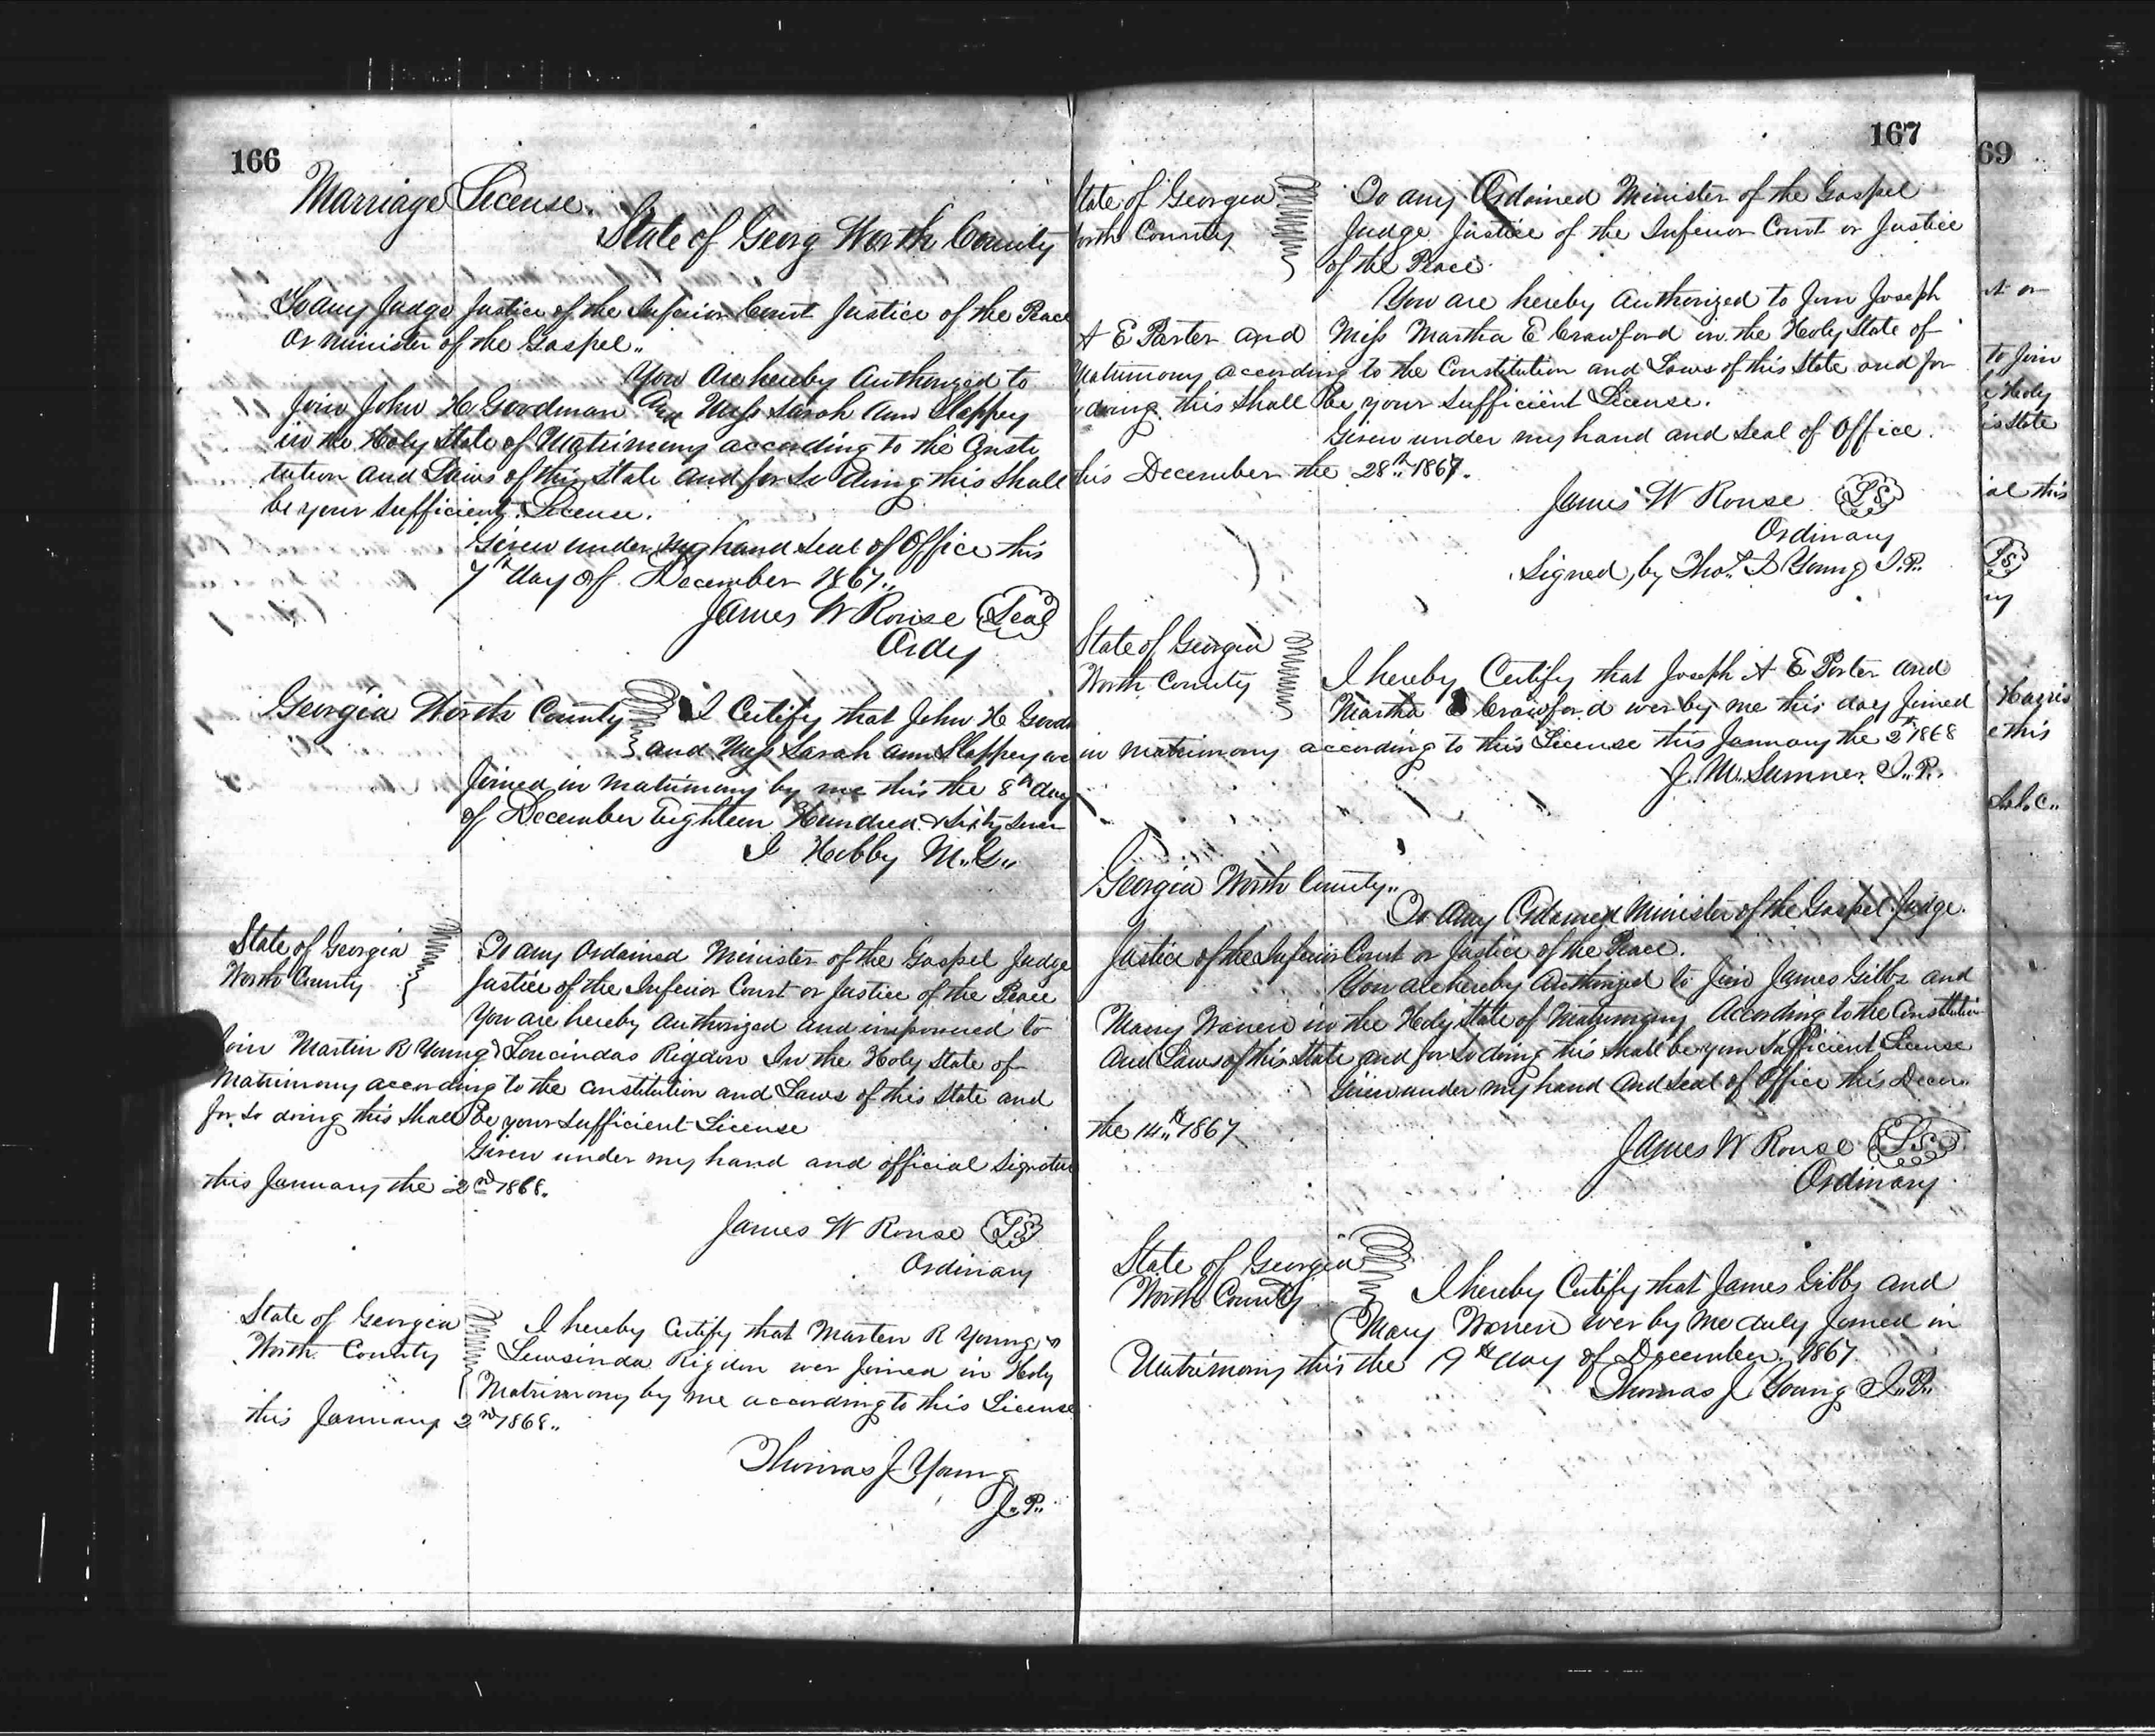 166
Marriage License.
State of Georg Worth County
To any Judge Justice of the Inferior Court Justice of the Peace
Or minister of the Gospel,,
You Are hereby Authorized to
Join John H Goodman And Miss Sarah Ann Slappey
in the Holy State of Matrimony according to the Consti
tution and Laws of this State and for So doing this Shall
be your Sufficient License.
Given under My hand Seal of Office this
7th day of December 1867,,
James W Rouse Seal
Ordy
Georgia Worth County I Certify that John H Good
and Miss Sarah ann Slappey we
Joined in matrimony by me this the 8th day
of December Eighteen Hundred & Sixty Seven
I Hobby M,,G,,
State of Georgia
Worth County
To any Ordained Minister of the Gospel Judge
Justice of the Inferior Court or Justice of the Peace
You are hereby Authorized and impowered to
Join Martin R Young & Loucindas Rigdon In the Holy State of
Matrimony according to the Constitution and Laws of this State and
for So doing this Shall be your Sufficient License
Given under my hand and official Signatu
this January the 2nd 1868.
James W Rouse LS
Ordinary
State of Georgia
Worth County
I hereby Certify that Marten R Young &
Lewsinda Rigdon wer Joined in Holy
Matrimony by me according to this License
this January 2nd 1868,,
Thomas J Young
J,,P,,
167
State of Georgia
orth County
To any Ordained Minister of the Gospel
Judge Justice of the Inferior Court or Justice
of the Peace
You are hereby Authorized to Join Joseph
A E Porter and Miss Martha E Crawford in the Holy State of
Matrimony according to the Constitution and Laws of this State and for
doing this Shall be your Sufficient License.
Given under my hand and Seal of Office.
his December the 28th 1867.
James W Rouse LS
Ordinary
Signed, by Thos. J Young J.P.
State of Georgia
Worth County
I hereby Certify that Joseph A E Porter and
Martha E Crawford wer by me this day Joined
in matrimony according to this License this January the 2nd 1868
J. M. Sumner J.P.
Georgia Worth County,,
To Any Ordained Minister of the Gospel Judge.
Justice of the Inferior Court or Justice of the Peace.
You are hereby Authorized to Join James Gibbs and
Mary Warren in the Holy State of Matrimony According to the Constitution
And Laws of this State and for So doing this Shall be your Sufficient License
Given under my hand And Seal of Office this Decem
the 14th 1867
James W Rouse LS
Ordinary
State of Georgia
Worth County
I hereby Certify that James Gibbs and
Mary Warren wer by me duly Joined in
Matrimony this the 19th day of December. 1867
Thomas J Young J.P.
69
t or
to Join
Holy
is State
al this
LS
ry
Harris
e this
J.I.C.,